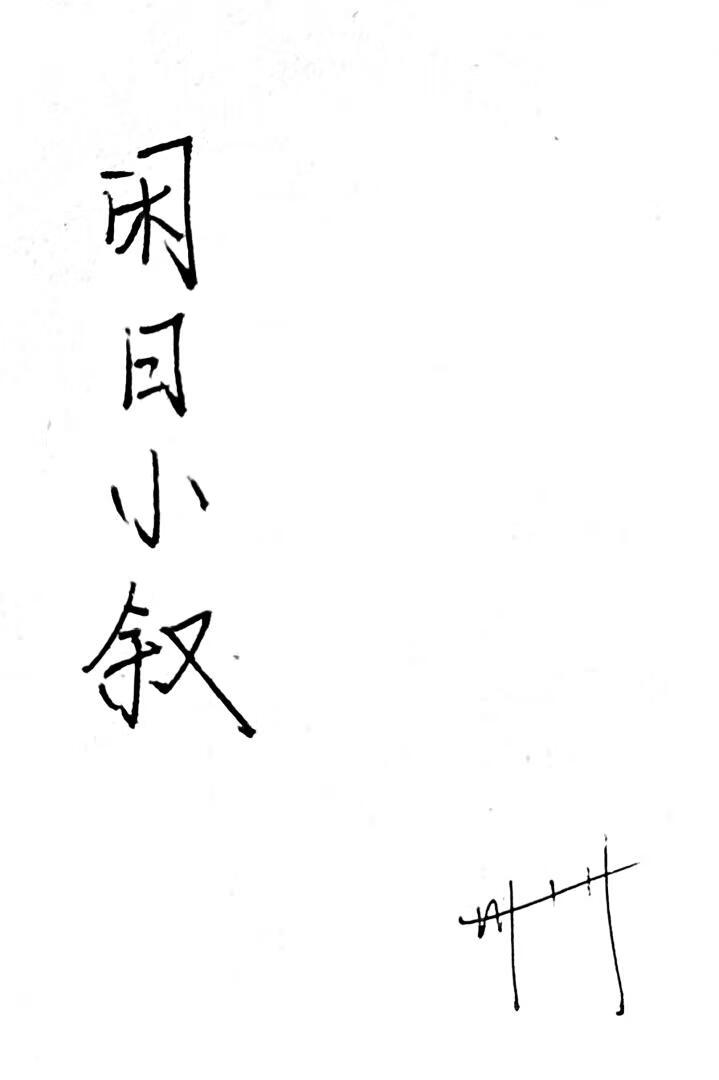 闲日小叙